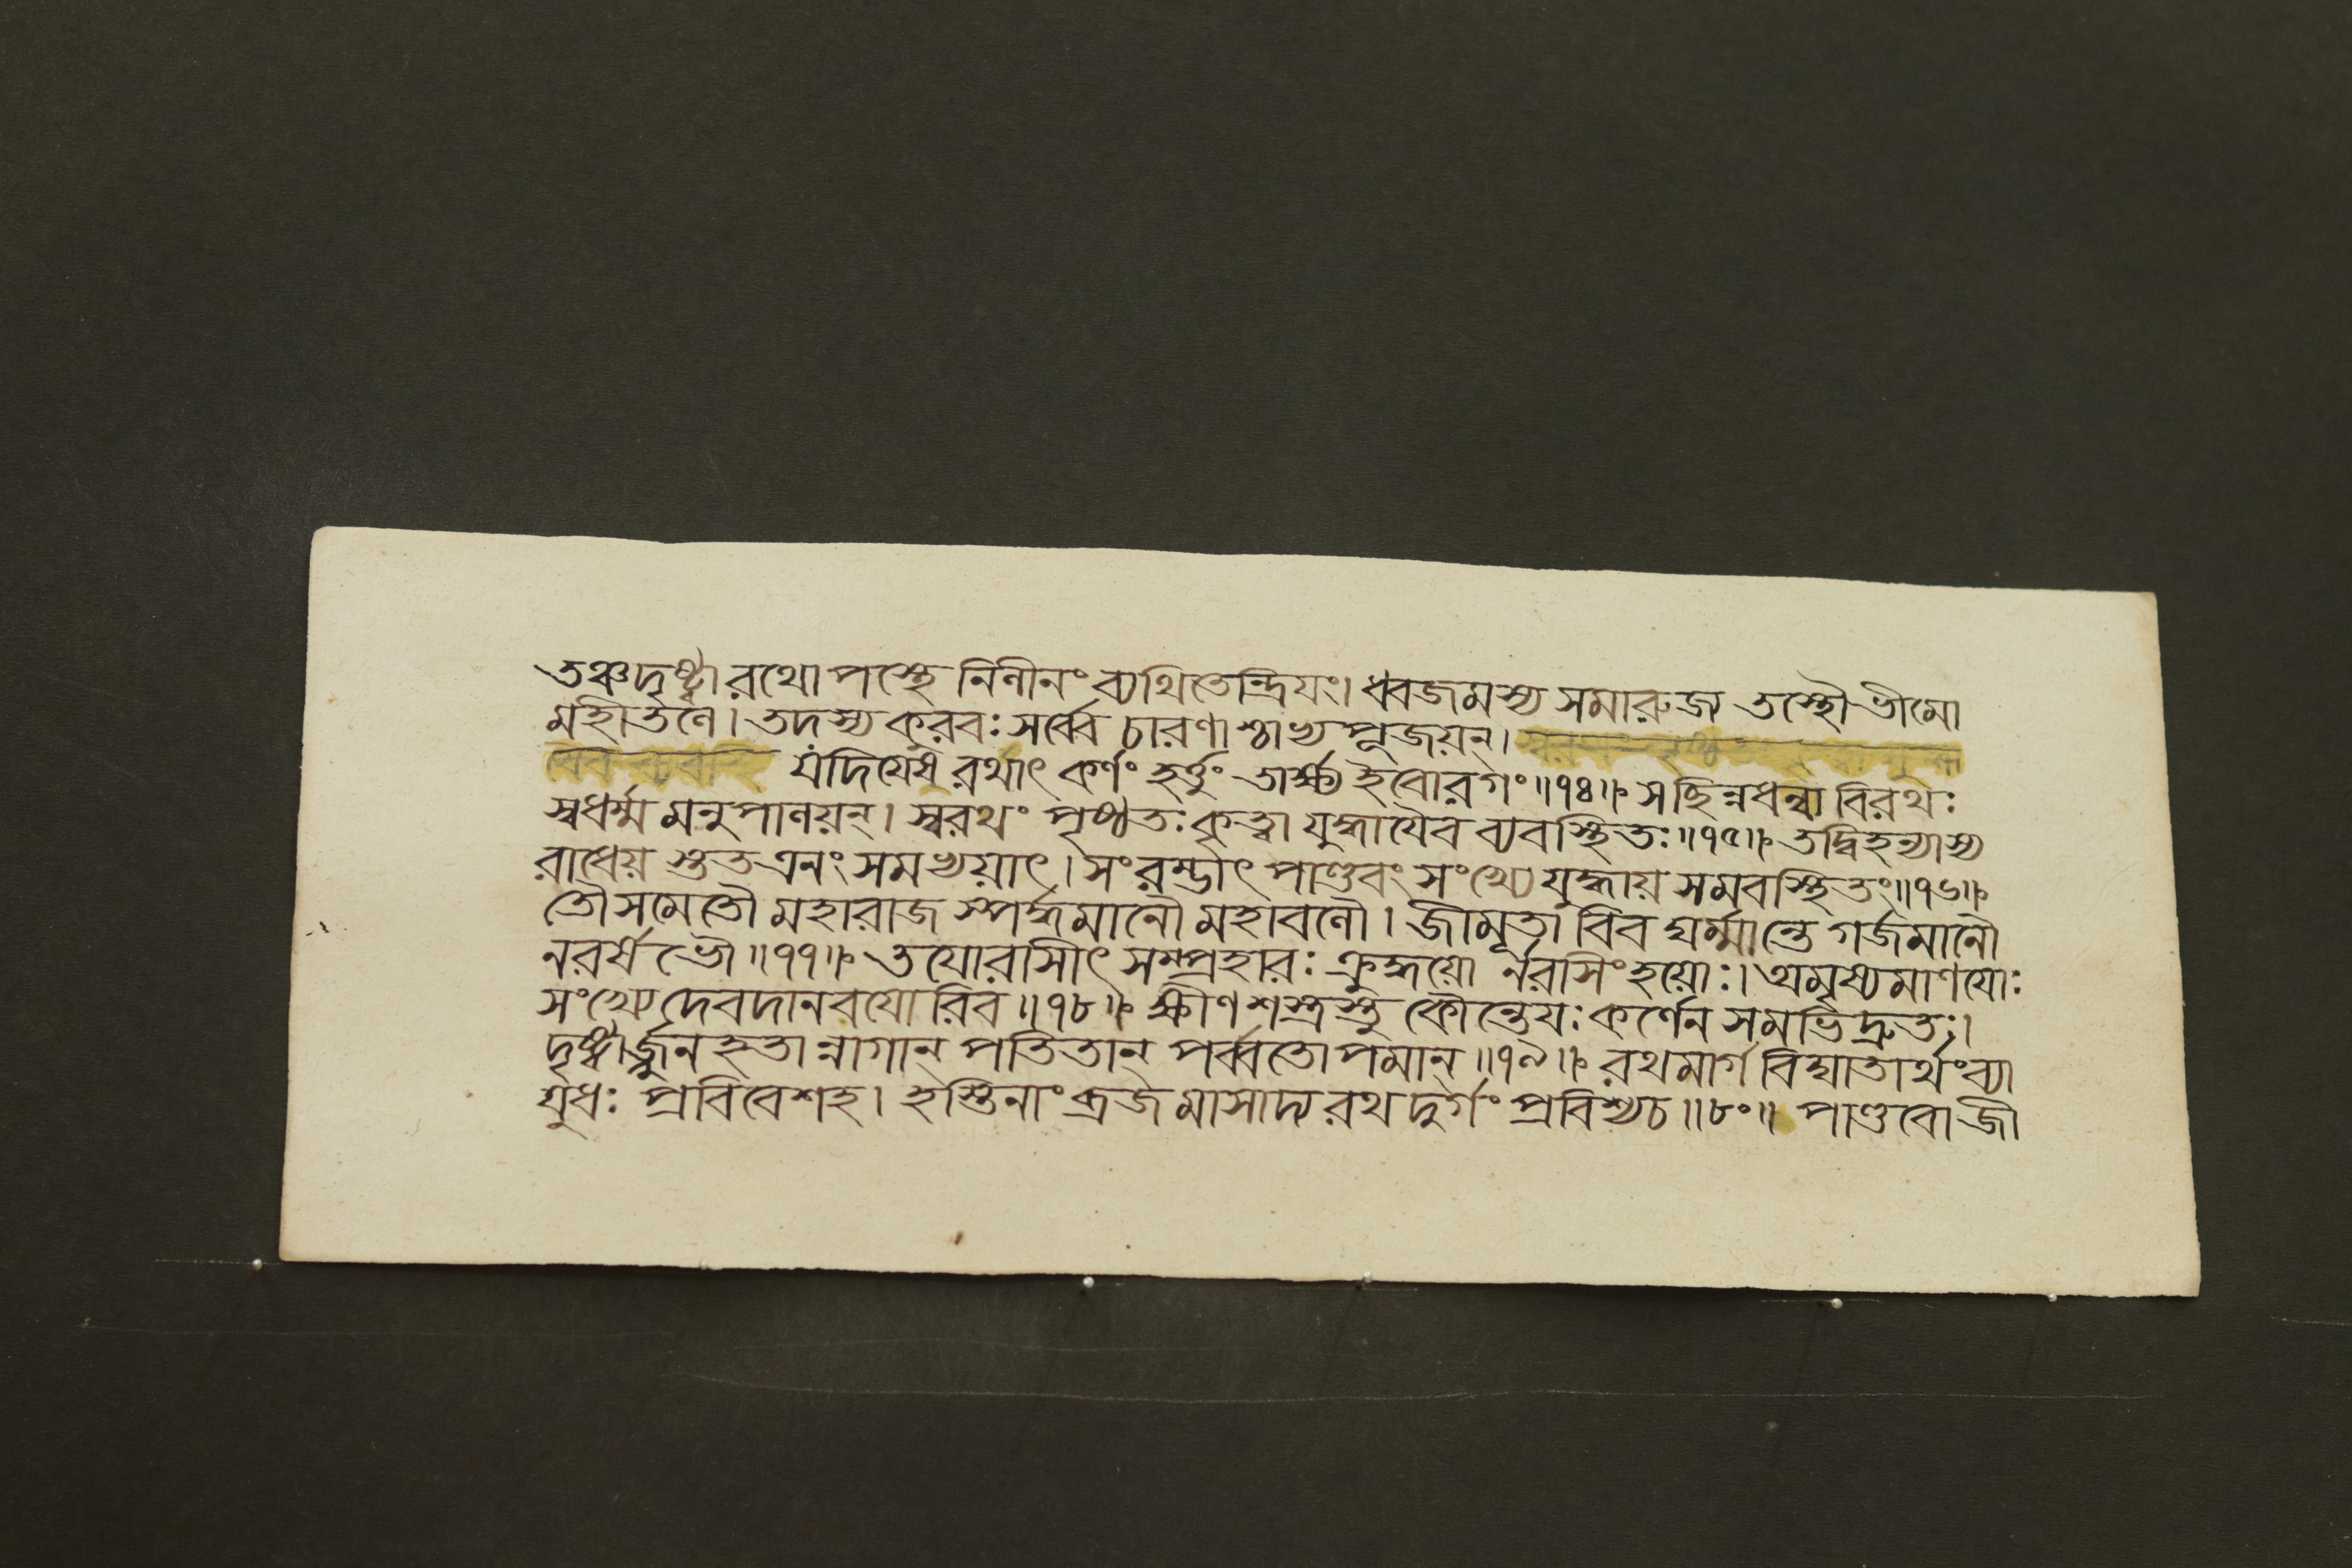 তঞ্চদৃষ্ট্বা রথোপস্থে নিলীনং ব্যথিতেন্দ্রিয়ং। ধ্বজমস্য সমারুজ তস্থৌ ভীমো
মহীতলে। তদস্য কুরবঃ সর্ব্বে চারণাশ্চাভ্যপূজয়ন্।
যদিয়েষ রথাৎ কর্ণং হর্ত্তুং তার্ক্ষ্য ইবোরগং॥৭৪॥ সচ্ছিন্নধন্বা বিরথঃ
স্বধর্ম্ম মনুপালয়ন্। স্বরথং পৃষ্ঠতঃ কৃত্বা যুদ্ধায়ৈব ব্যবস্থিতঃ॥৭৫॥ তদ্বিহত্যাস্য
রাধেয় স্তুত এনং সমভ্যয়াৎ। সংরম্ভাৎ পাণ্ডবং সংখ্যে যুদ্ধায় সমবস্থিতং॥৭৬॥
তৌ সমেতৌ মহারাজ স্পর্দ্ধমানৌ মহাবলৌ। জীমূতা বিব ঘর্ম্মান্তে গর্জমানৌ
নরর্ষভৌ॥৭৭॥ তয়োরাসীৎ সম্প্রহারঃ ক্রুদ্ধয়ো র্নরসিংহয়োঃ। অমৃষ্যমাণয়োঃ
সংখ্যে দেবদানবয়োরিব॥৭৮॥ ক্ষীণশস্ত্রস্তু কৌন্তেয়ঃ কর্ণেন সমভিদ্রুতঃ।
দৃষ্ট্বার্জ্জুন হতা ন্নাগান্ পতিতান্ পর্ব্বতোপমান্॥৭৯॥ রথমার্গ বিঘাতার্থং ব্যা
য়ুধঃ প্রবিবেশহ। হস্তিনাং ব্রজমাসাদ্য রথদুর্গং প্রবিশ্যচ॥৮০॥ পাণ্ডবো জী